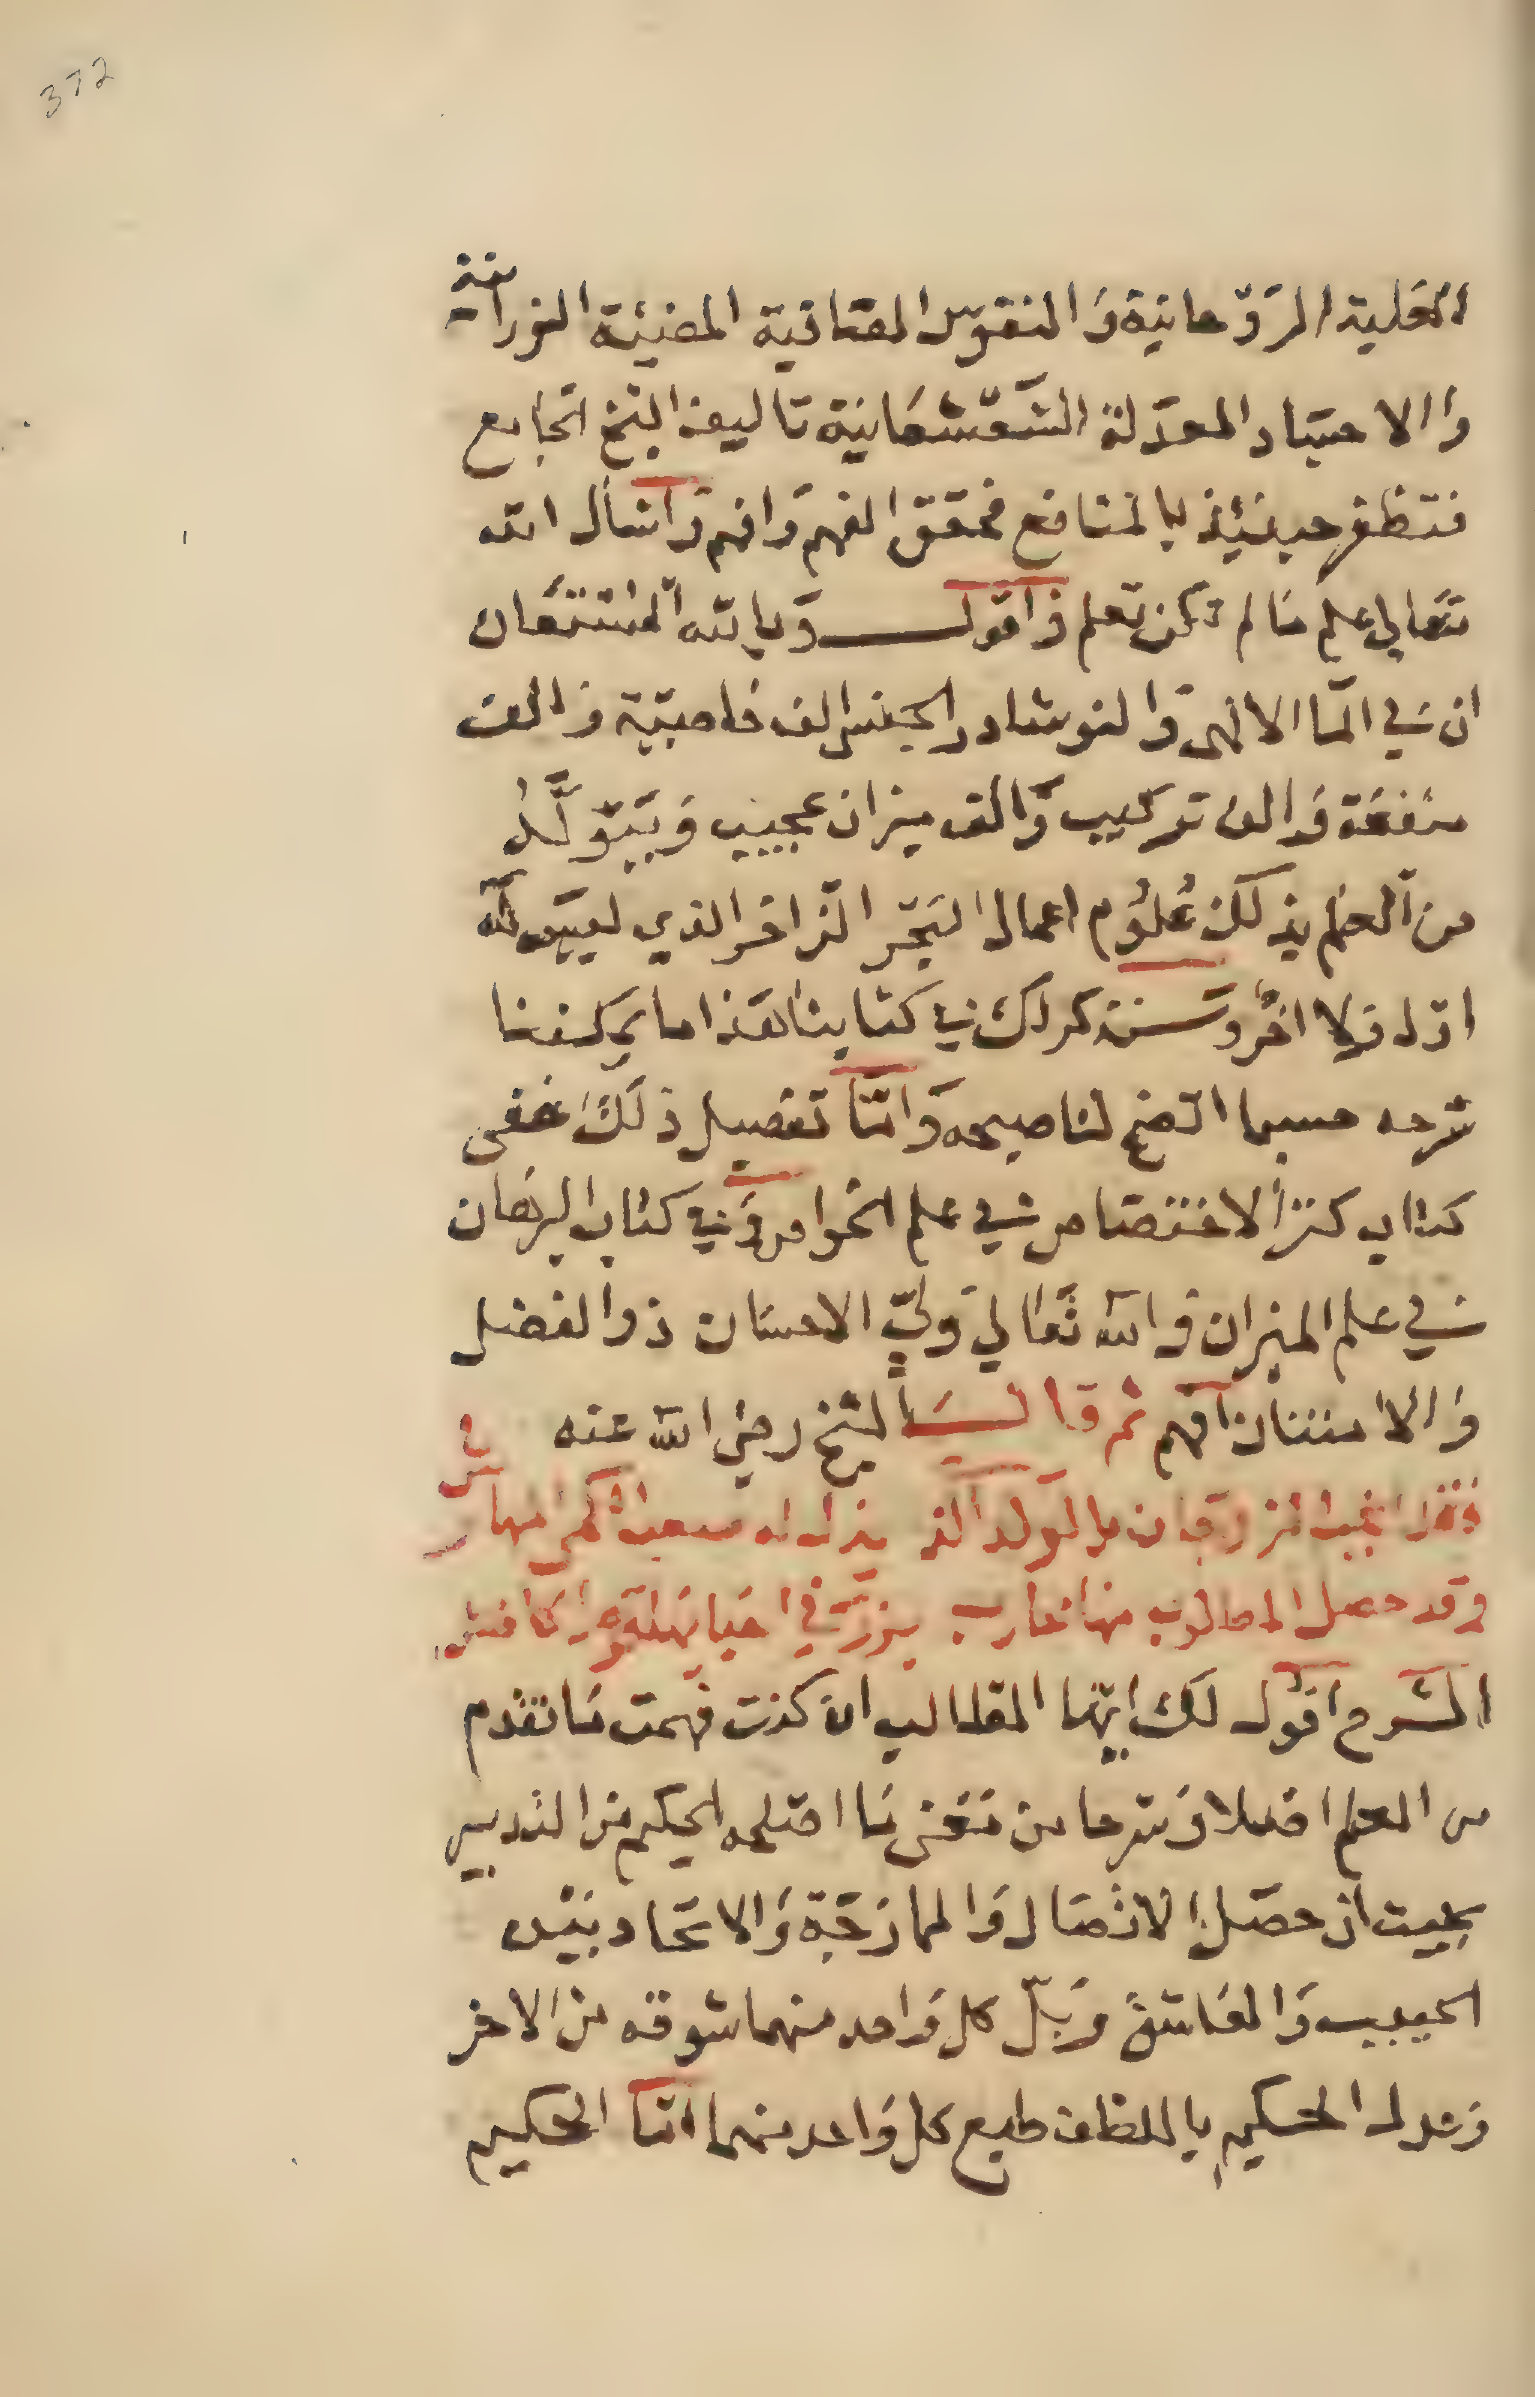 372
العلية الروحانية والنفوس الصافية المضيئة النورانية
والاجساد المعدلة الشعشعانية تاليف الشيخ الجامع
فتظفر حينئذ بالمنافع فحقق الفهم وافهم واسأل الله
تعالي علم ما لم تكن تعلم واقول وبالله المستعان
ان في الما الالهي والنوشادر الجنس الف خاصية والف
منفعة والف تركيب والف ميزان عجيب ويتولد
من العلم بذلك علوم اعمال البحر الزاخر الذي ليس له
اول ولا اخر وسنذكر لك في كتابنا هذا ما يمكننا
شرحه حسبما اتضح لنا صبحه واما تفصيل ذلك ففي
كتاب كنز الاختصاص في علم الخواص وفي كتاب البرهان
في علم الميزان والله تعالي ولي الاحسان ذو الفضل
والامتنان افهم ثم قال الشيخ رضي الله عنه
وقد حصل المطلوب منها
الشرح اقول لك ايها الطالب ان كنت فهمت ما تقدم
من العلم اصلا وشرحا من معني ما اصلحه الحكيم من التدبير
بحيث ان حصل الاتصال والممازجة والاتحاد بين
الحبيب والعاشق وبل كل واحد منهما شوقه من الاخر
وعدل الحكيم باللطف طبع كل واحد منهما اتا الحكيم